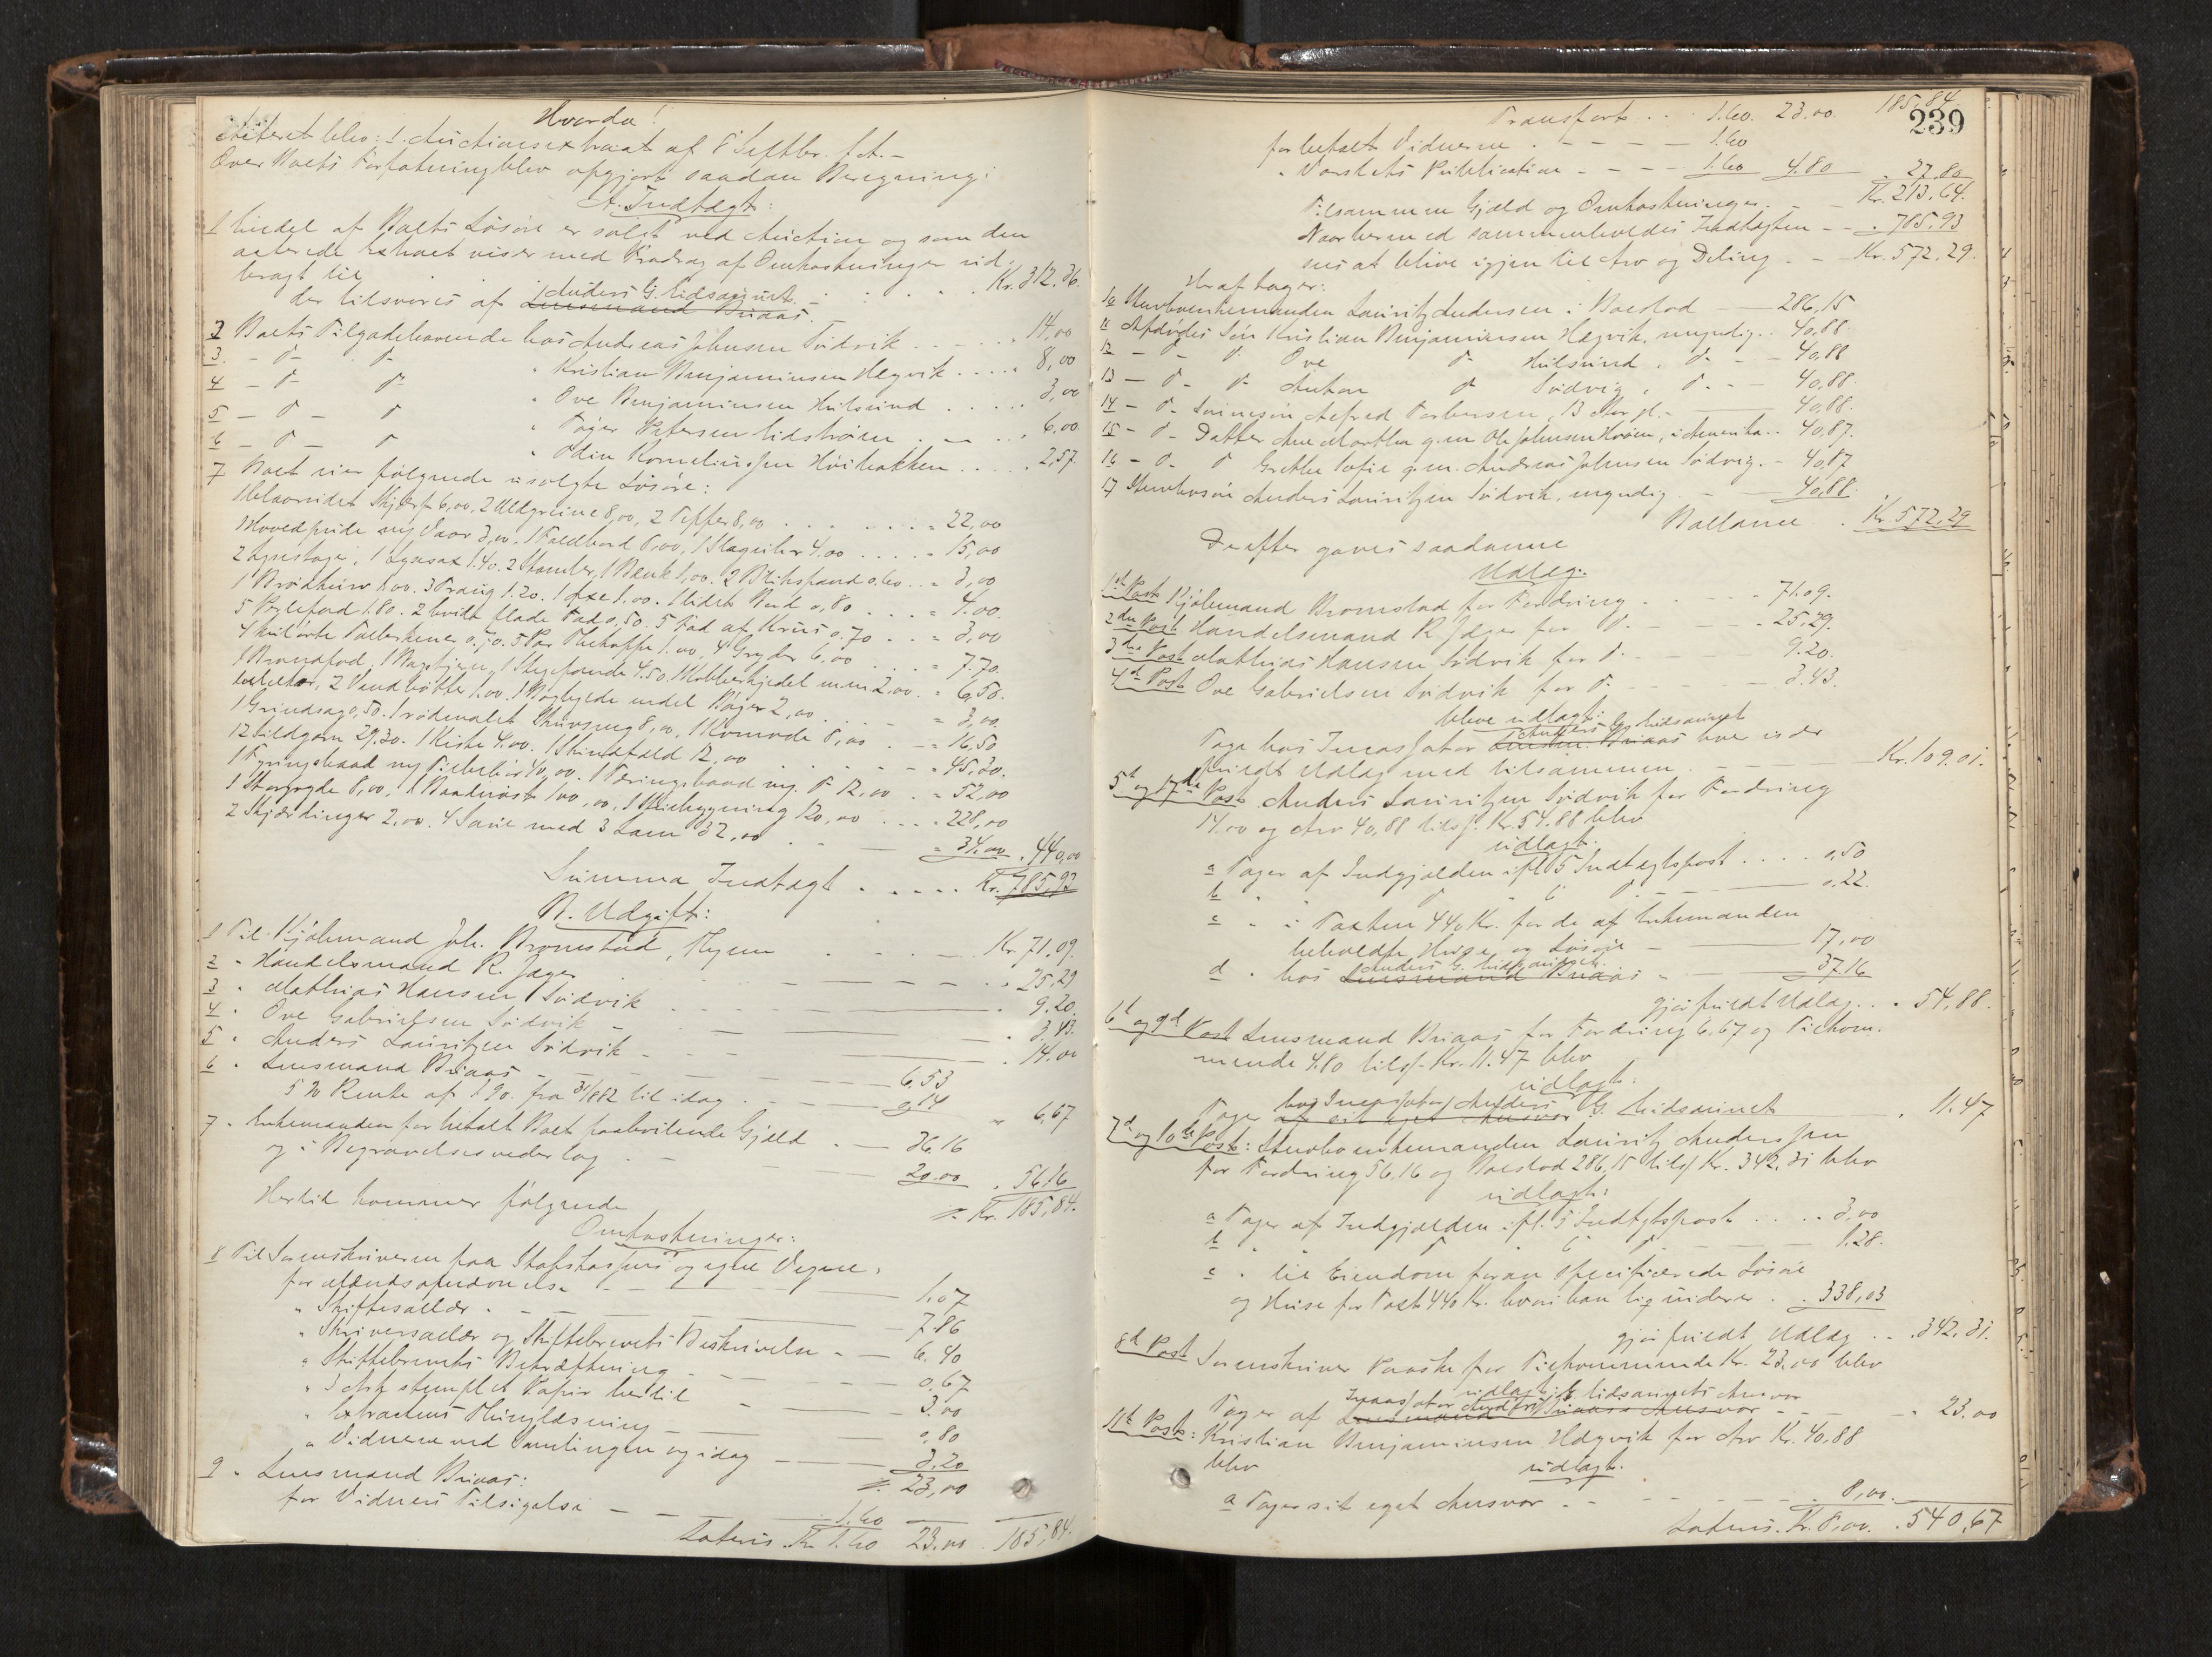 Hvorda!
Acteret blev: 1. Auctionsextract af 8 Septbr. f.A. –
Over Boets Forfatning blev opgjort saadan Beregning:
A. Indtægt:
1 Endel af Boets Løsøre er solgt ved Auction og som den
acterede Extract viser med Fradrag af Omkostninger ud-
bragt til . . . . Kr. 312,36.
der tilsvares af Lensmand Buaas. Anders G. Eidsaunet. –
2 Boets Tilgodehavende hos Andreas Johnsen Sødvik . . . 14,00
3. – d – d – " Kristian Benjaminsen Hegvik . . . 8,00
4 – d – d – " Ove Benjaminsen Hulsund . . . . 3,00
5 – d – d " Tøger Petersen Eidshøien . – . . 6,00
6 – d – d " Odin Korneliussen Høibakken . . . . 2,57
7 Boet eier følgende usolgte Løsøre:
1 blaarudet Skjerf 6,00, 2 Uldgreine 8,00, 2 Tepper 8,00 . . . . = 22,00
1 Hovedpude nyt Vaar 3,00. 1 Foldbord 8,00, 1 Slaguhr 4.00 . . . . = 15,00
2 Lysestager, 1 Lysesax 1.40. 2 Stamler, 1 Bænk 1,00. 2 Blikspand 0.60 . . = 3,00
1 Brødkurv 1.00. 3 Traug 1.20. 1 Øxe 1.00. 1 lidet Bord 0,80 . . . . = 4.00.
5 Porcelfad 1.80. 2 hvidt flade Fad 0,50. 5 Fad af Krus 0.70 . . = 3,00
4 kulørte Tallerkener 0.70. 5 Par Thekopper 1.00, 4 Gryder 6.00 . . . . = 7.70.
1 Brændfod, 1 Bagstjern, 1 Stegepande 4.50. 1 Kobberkjedel m.m. 2.00. = 6,50.
2 Vandbøtter 1.00. 1 Boghylde endel Bøger 2,00 . . . – = 3,00.
1 Grindsag 0,50. 1 rødmalet Skuvseng 8,00, 1 Komode 8,00 . – = 16,50
12 Sildgarn 29.30. 1 Kiste 4.00. 1 Skindfeld 12,00 . . . . = 45,30.
1 Fyringsbaad m/ Tilbehør 40,00. 1 Færingsbaad m/ d 12,00 . . = 52,00
1 Storgryde 8,00, 1 Baadnøst 100,00, 1 Husbygning 120,00 . . . . 228,00
2 Skjærdinger 2.00. 4 Søuer med 3 Lam 32,00 . . — = 34.00 . 440,00
Summa Indtægt . . . . . Kr. 785,93
B. Udgift:
1 Til Kjøbmand Joh. Bromstad, Thjem . . . – . Kr. 71,09.
2 " Handelsmand R. Jæger – – – – . . 25,29
3 " Mathias Hansen Sødvik . . . . . 9.20.
4 " Ove Gabrielsen Sødvik – – — . 3.43.
5 " Anders Lauritzen Sødvik – – — . 14.00
6 " Lensmand Buaas – – – – 6,53
5 % Rente af 190. fra 31/1 82 til idag . . – 0,14 " 6,67
7 " Enkemanden for betalt Boet paahvilende Gjæld . — 36.16
og i Begravelsesvederlag . – – 20.00 . 56,16
÷ Kr. 185,84.
Hertil kommer følgende
Omkostninger:
8 Til Sorenskriveren paa Skifskassens og egne Vegne:
for Afædsopnævnelse – – – 1.07
" Skiftesallær . – – – 7.86
" Skriversallær og Skiftebrevets Beskrivelse . — 6.40
" Skiftebrevets Bekræftning – – – 0.67
" 3 Ark stemplet Papir hertil – – 3.00
" Extractens Thinglæsning – – – 0,80
" Vidnerne ved Samlingen og idag — 3,20
÷ 23,00
9 " Lensmand Buaas:
for Vidners Tilsigelse – – – 1.60
Lateris Kr. 1.60 23.00 . 185,84.
239
Transport . . . 1.60. 23.00. 185,84
for betalt Vidnerne . – – – – 1.60
" Vorskets Publication – – – – 1.60 4.80 . 27.80
Tilsammen Gjæld og Omkostninger. – – Kr. 213,64.
Naar hermed sammenholdes Indtægten – – . 785.93
sees at blive igjen til Arv og Deling. – – Kr. 572.29.
Heraf tager:
10 Stervboenkemanden Lauritz Andersen i Boeslod — 286,15
11 Afdødes Søn Kristian Benjaminsen Hegvik, myndig. . 40.88.
12 – d – d Ove d Hulsund, d – – 40,88
13 – d – d Anton d Sødvig, d. – – 40,88.
14 – d – Sønnesøn Alfred Torbersen, 13 Aar gl. – — 40.88.
15 – d – Datter Ane Martha g.m. Ole Johnsen Hvøien, i Amerika . . 40,87.
16 – d – d Grethe Sofie g.m. Andreas Johnsen Sødvig. – 40,87
17 Stervbosøn Anders Lauritzen Sødvik, myndig – – 40,88.
Ballance . Kr. 572,29
Derefter gaves saadanne
Udlæg.
1ste Post Kjøbmand Bromstad for Fordring . – – 71.09.
2den Post. Handelsmand R. Jæger for d. – – . 25,29.
3die Post Mathias Hansen Sødvik for d. – – 9.20.
4de Post Ove Gabrielsen Sødvik for d. – – – – 3.43.
bleve udlagt:
Tage hos Incassator Lensm. Buaas Anders G. Eidsaunet hvor er der
friedt Udlæg med tilsammen – – – Kr. 109.01.
5te og 17de Post Anders Lauritzen Sødvik for Fordring
14.00 og Arv 40,88 tils. Kr. 54.88 blev
udlagt:
a Tager af Indgjælden ifl. 5 Indtægtspost . . . . 0,50
b " " d " 6 d – – – 0,22.
c " " i Taxten 440 Kr. for de af Enkemanden
beholdte Huse og Løsøre – – – 17,00
d " hos Lensmand Buaas Anders G. Eidsaunet – – 37.16
gjør friedt Udlæg . . 54,88.
6te og 9de Post Lensmand Buaas for Fordring 6,67 og Tilkom-
mende 4.80 tils. Kr. 11.47 blev
udlagt:
Tage af sit eget Ansvar hos Incassator Anders G. Eidsaunet — . 11.47
7de og 10de Post: Stervboenkemanden Lauritz Anderssen
for Fordring 56,16 og Boeslod 286,15 tils. Kr. 342,31 blev
udlagt:
a Tager af Indgjælden ifl. 5 Indtægtspost . . . . . 3,00
b " " d " 6 d – – – 1.28.
c " til Eiendom foran specificerede Løsøre
og Huse for Taxt 440 Kr. hvori han liqviderer . . 338,03
gjør friedt Udlæg . . . 342.31.
8de Post Sorenskriver Paaske for Tilkommende Kr. 23.00 blev
udlagt:
Tager af Lensmand Buaas's Ansvar Incassator Anders G. Eidsaunets Ansvar – – " 23.00
11te Post: Kristian Benjaminsen Hegvik for Arv Kr. 40,88
blev udlagt:
a Tager sit eget Ansvar . – – – – 8,00.
Lateris. Kr. 8,00. . 540,67